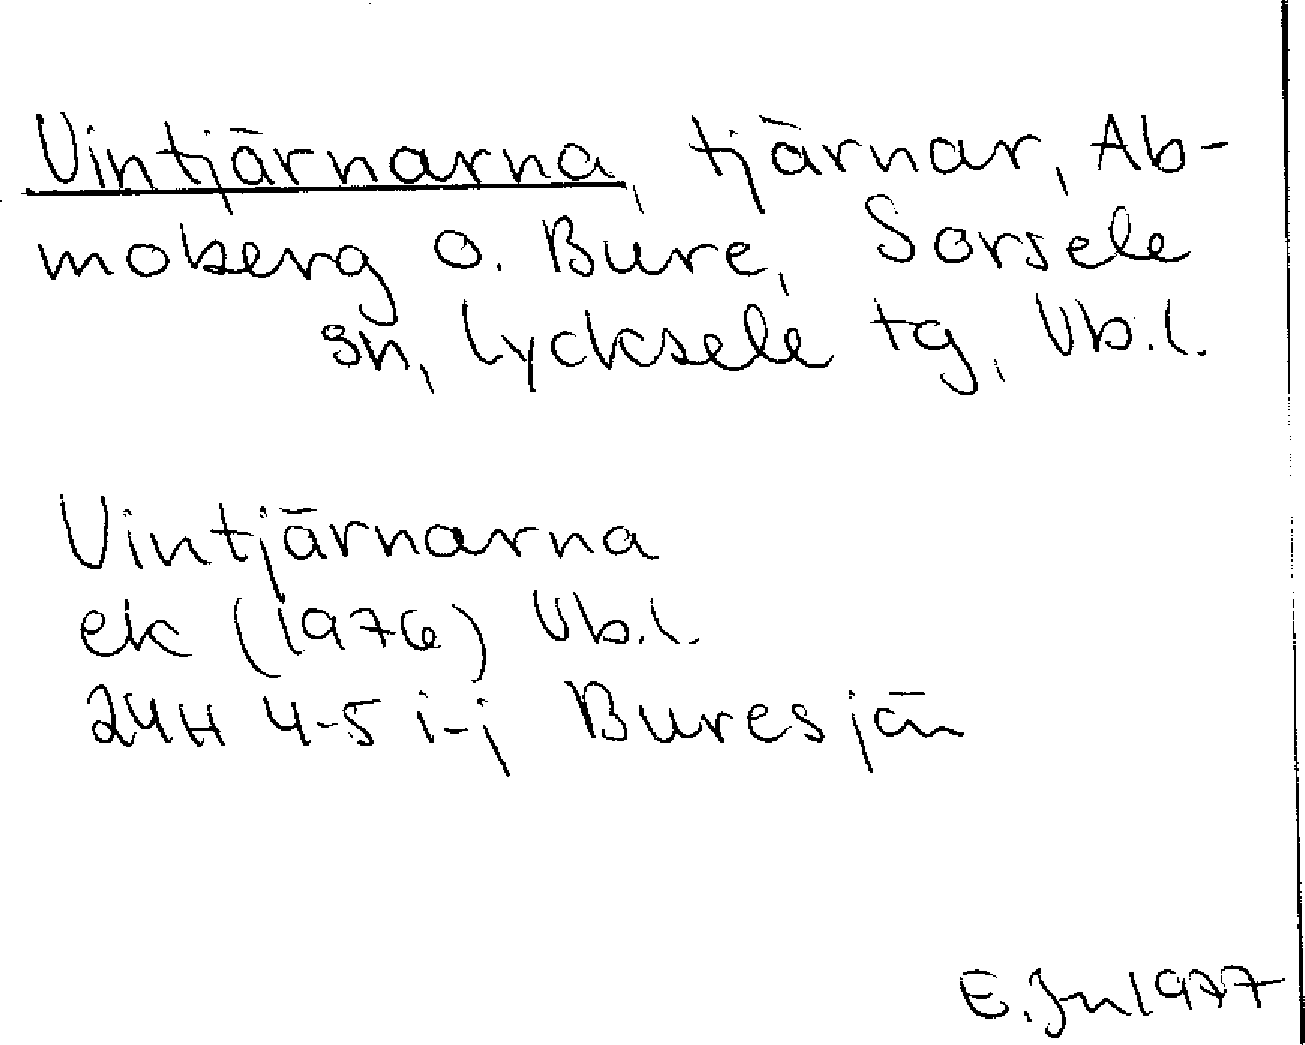 Vintjärnarna, tjärnar, Ab-
moberg o. Bure, Sorsele
sn, Lycksele tg, Vb.l.
Vintjärnarna
ek (1976) Vb.l.
24H 4-5 i-j Buresjön
E. Jn 1977